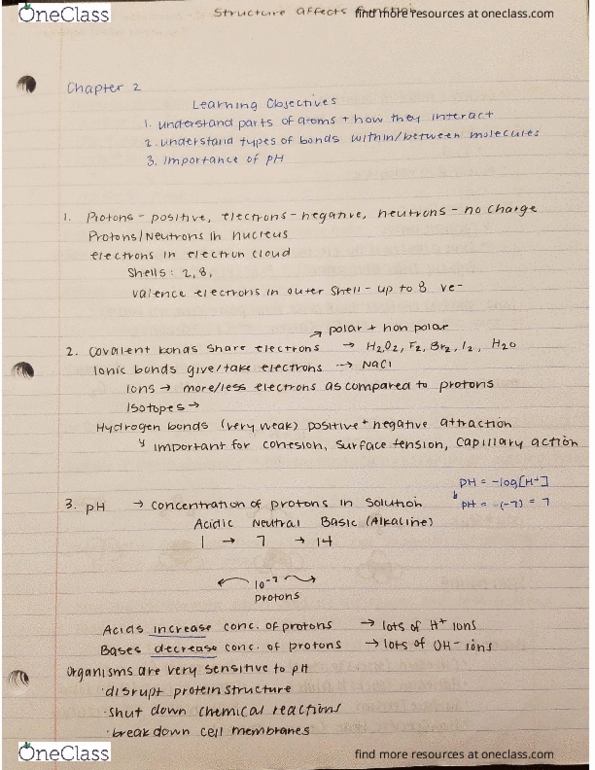 OneClass
Structure affects function
find more resources at oneclass.com
Chapter 2
Learning Objectives
1. understand parts of atoms + how they interact
2. understand types of bonds within/between molecules
3. Importance of pH
1. Protons - positive, electrons - negative, neutrons - no charge
Protons/Neutrons in nucleus
electrons in electron cloud
Shells: 2, 8,
valence electrons in outer shell - up to 8 ve-
→ polar + non polar
2. Covalent bonds share electrons → H₂O₂, F₂, Br₂, I₂, H₂O
Ionic bonds give/take electrons → NaCl
Ions → more/less electrons as compared to protons
Isotopes →
Hydrogen bonds (very weak) positive + negative attraction
↳ important for cohesion, surface tension, capillary action
pH = -log[H⁺]
3. pH → concentration of protons in solution ↳ pH = -(-7) = 7
Acidic Neutral Basic (Alkaline)
1 → 7 → 14
← 10⁻⁷ →
protons
Acids increase conc. of protons → lots of H⁺ ions
Bases decrease conc. of protons → lots of OH⁻ ions
Organisms are very sensitive to pH
· disrupt protein structure
· shut down chemical reactions
· break down cell membranes
OneClass
find more resources at oneclass.com